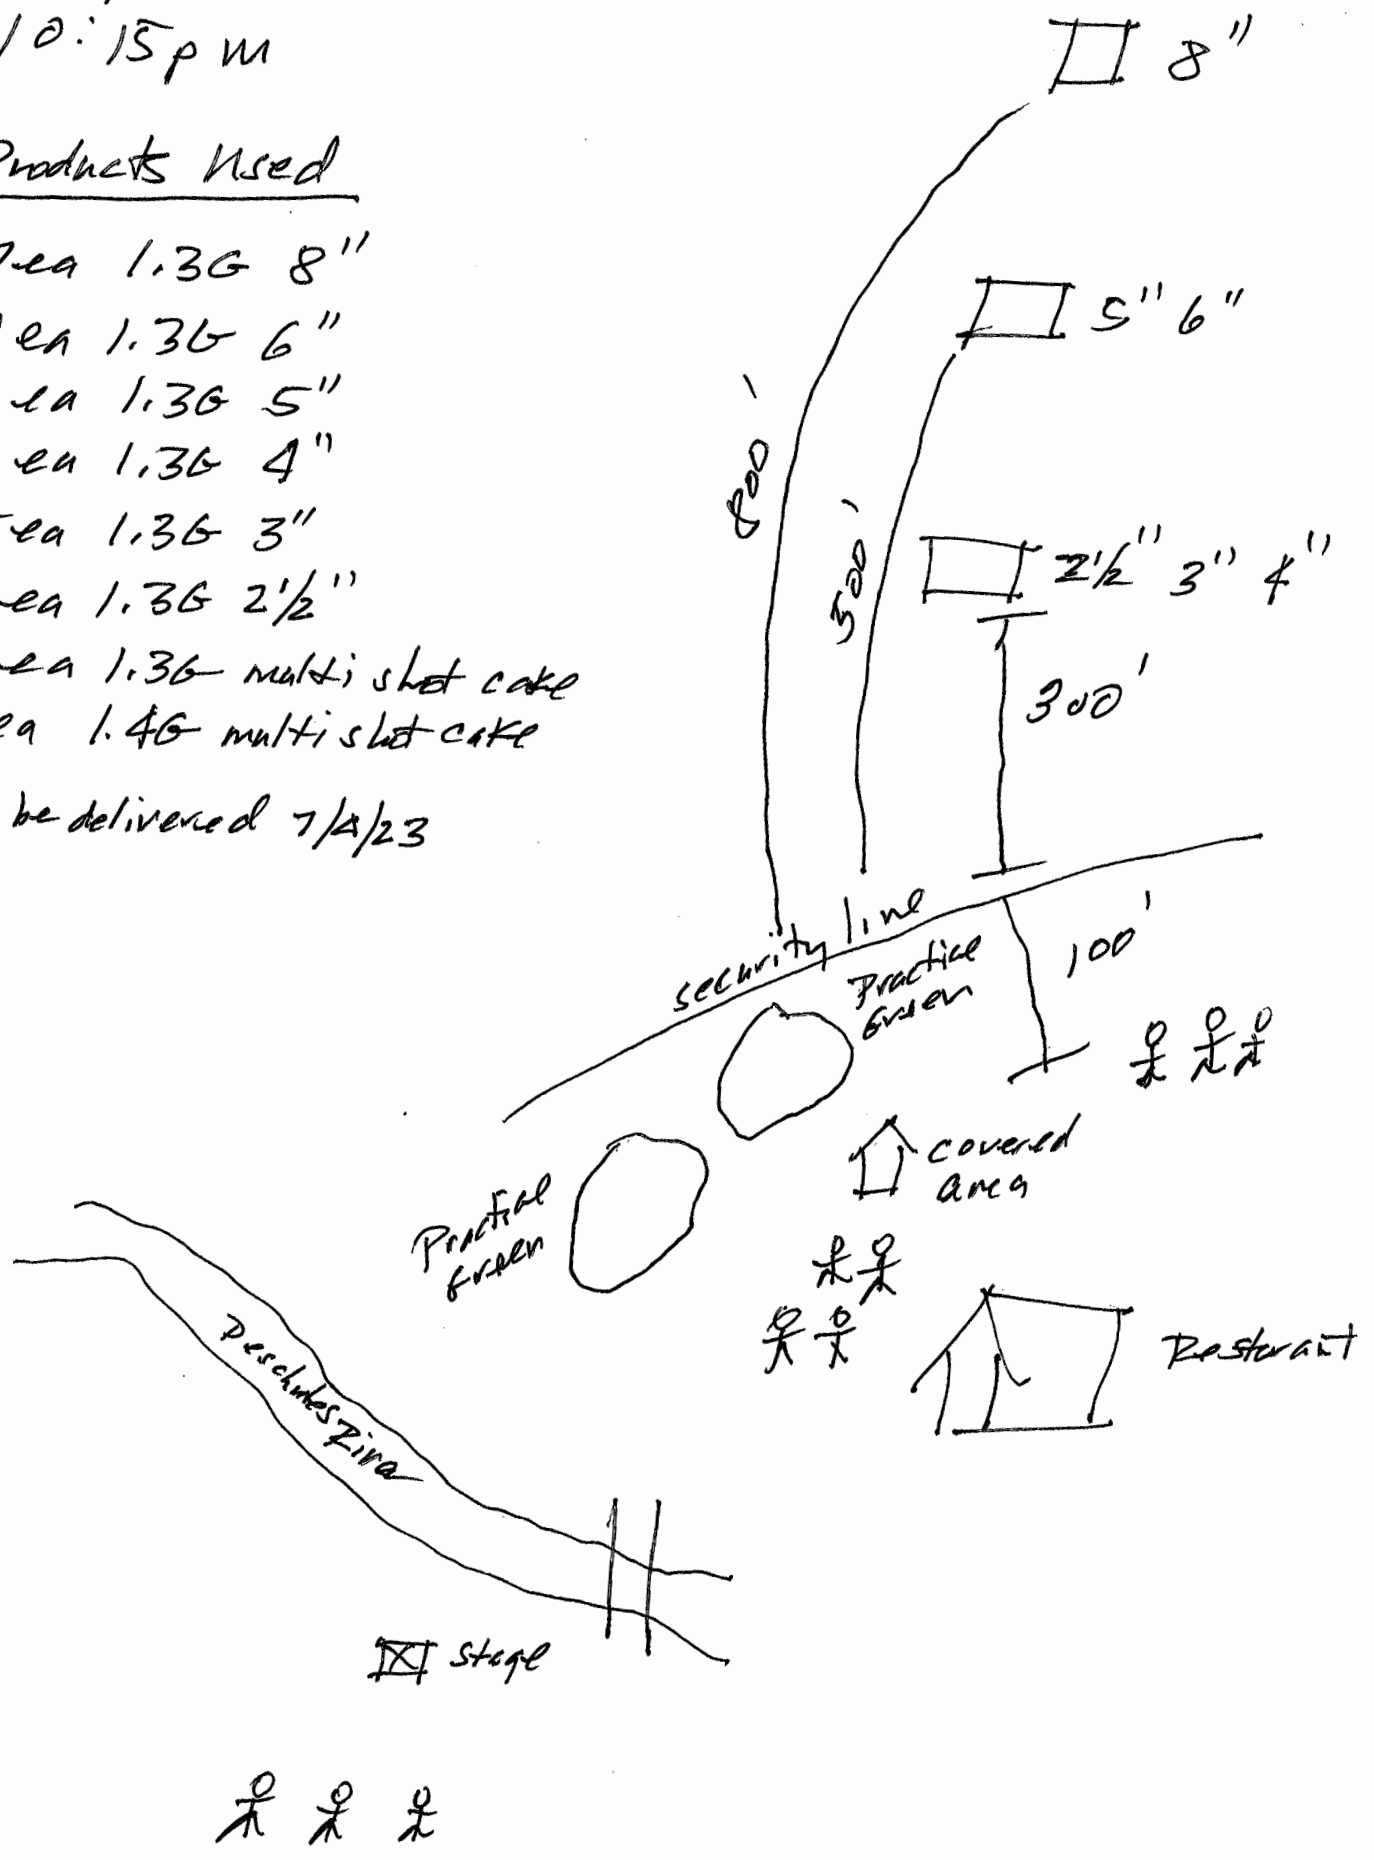 10:15pm
Products Used
ea 1.3G 8"
ea 1.3G 6"
ea 1.3G 5"
ea 1.3G 4"
ea 1.3G 3"
ea 1.3G 2½"
ea 1.3G multi shot cake
ea 1.4G multi shot cake
be delivered 7/4/23
8"
5" 6"
2½" 3" 4"
800'
500'
300'
security line
100'
Practice
Green
covered
area
Practical
Green
Restarant
Deschutes River
stage